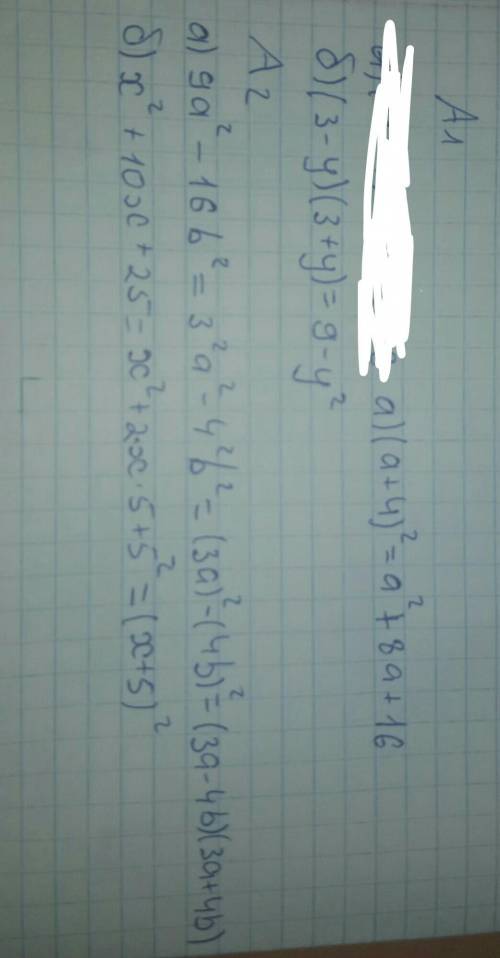 A1
а) (a+4)² = a² + 8a + 16
б) (3-y)(3+y) = 9 - y²
A2
а) 9a² - 16b² = 3²a² - 4²b² = (3a)² - (4b)² = (3a-4b)(3a+4b)
б) x² + 10x + 25 = x² + 2·x·5 + 5² = (x+5)²